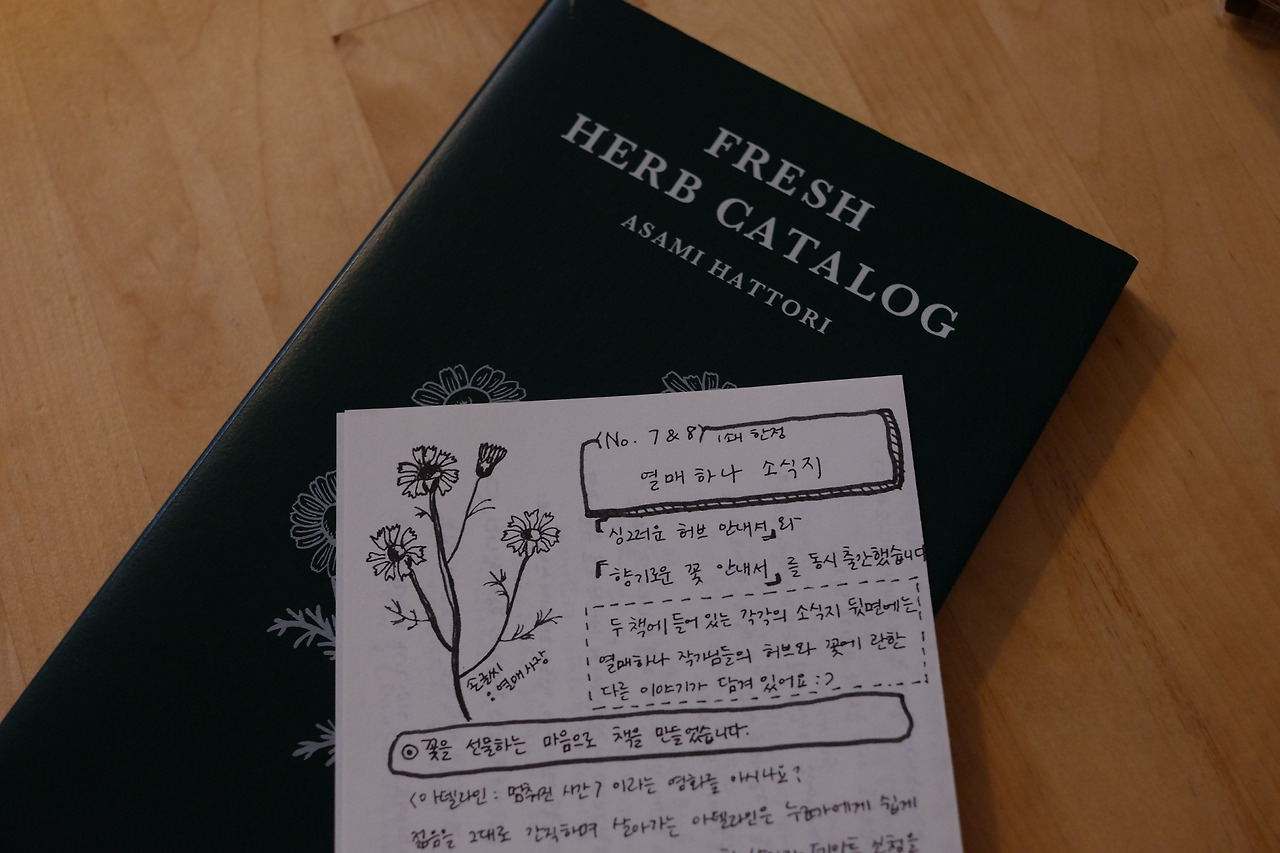 FRESH
HERB CATALOG
ASAMI HATTORI
<No. 7 & 8> 1쇄 한정
열매하나 소식지
『싱그러운 허브 안내서』와
『향기로운 꽃 안내서』를 동시 출간했습니다
두 책에 들어 있는 각각의 소식지 뒷면에는,
열매하나 작가님들의 허브와 꽃에 관한
다른 이야기가 담겨 있어요 :)
손글씨
: 열매 사장
◎ 꽃을 선물하는 마음으로 책을 만들었습니다.
<아델라인 : 멈춰진 시간> 이라는 영화를 아시나요?
젊음을 그대로 간직하며 살아가는 아델라인은 누군가에게 쉽게
데이트 신청을